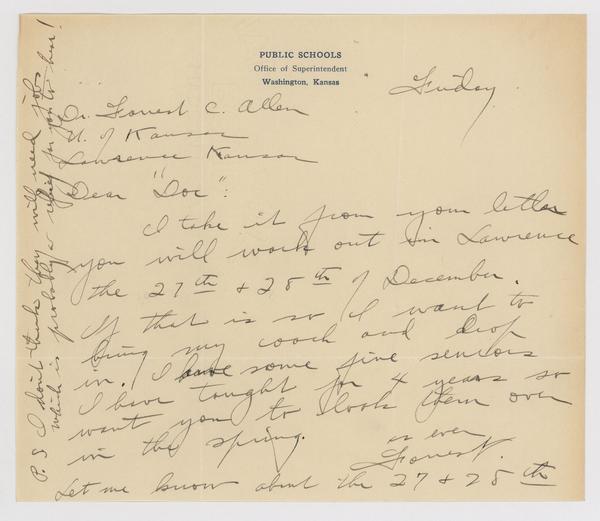 PUBLIC SCHOOLS
Office of Superintendent
Washington, Kansas
Friday.
Dr. Forrest C. Allen
U. of Kansas
Lawrence Kansas
Dear "Doc":
I take it from your letter
you will work out in Lawrence
the 27th + 28th of December.
If that is so I want to
bring my coach and drop
in. I have some fine seniors
I have taught for 4 years so
want you to look them over
in the spring.
as ever
Forrest.
Let me know about the 27 + 28th
P.S I don't think they will need jobs
which is probably a relief for you to hear!